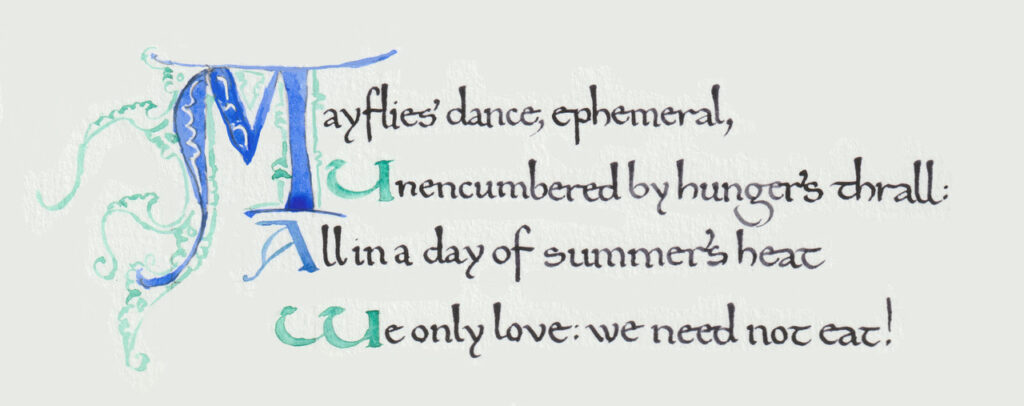 Mayflies' dance, ephemeral,
Unencumbered by hunger's thrall:
All in a day of summer's heat
We only love: we need not eat!